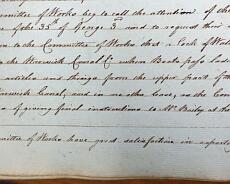 mmittee of Works beg to call the attention of the
John 35th of George 3 and to request their
on to the Committee of Works that Lock of Wal
the Warwick Canal Co. when Boats pass laden
articles and things from the upper part of the
Warwick Canal, and in no other case, as the Com
of giving final instructions to Mr. Bailey at the
mmittee of Works have good satisfaction in reporting